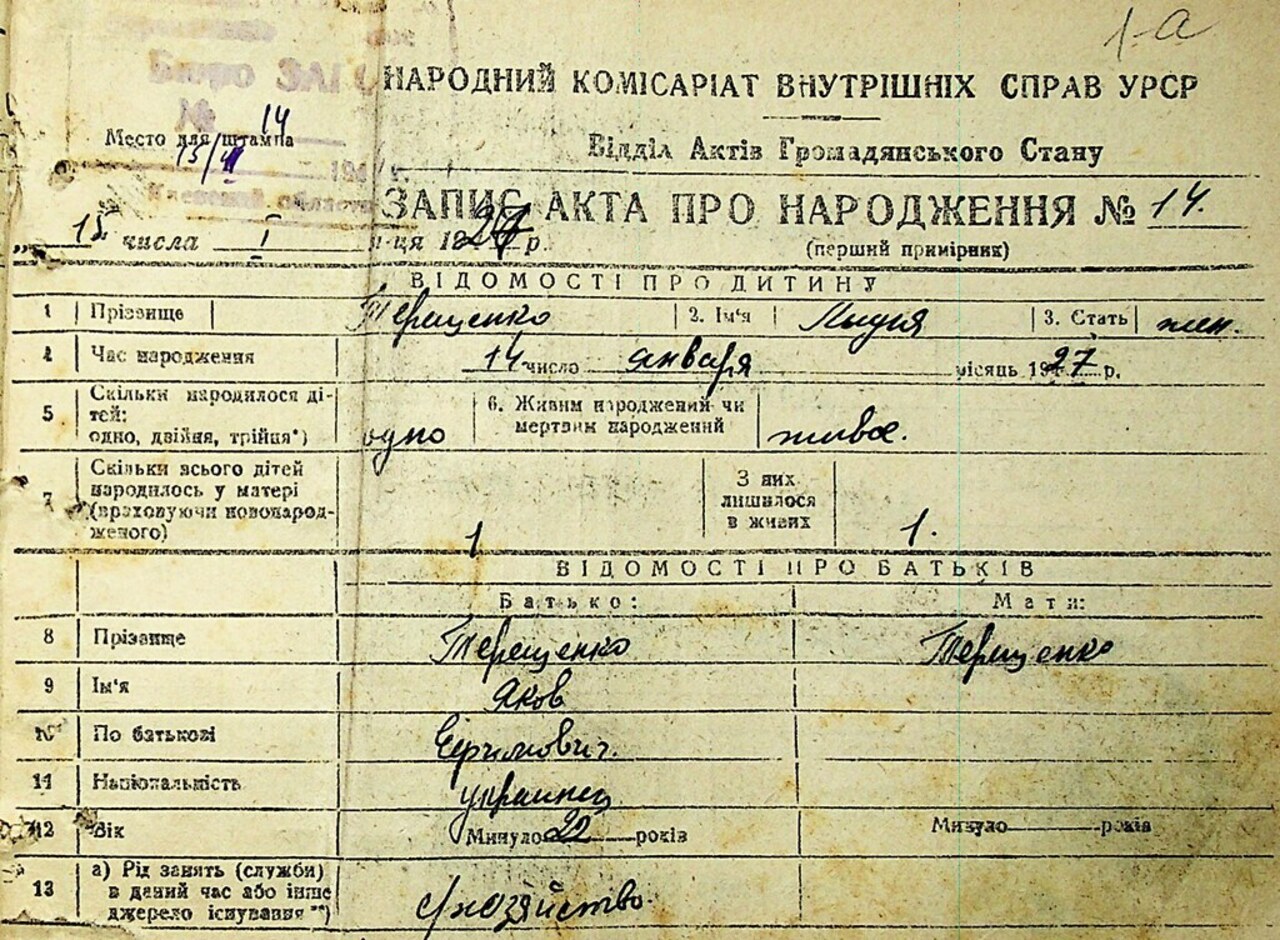 1-а
Бюро ЗАГС
НАРОДНИЙ КОМІСАРІАТ ВНУТРІШНІХ СПРАВ УРСР
№ 14
Место для штампа
Відділ Актів Громадянського Стану
15/II 194 г.
Киевской области
ЗАПИС АКТА ПРО НАРОДЖЕННЯ № 14.
„ 15 числа I м-ця 1927 р.
(перший примірник)
ВІДОМОСТІ ПРО ДИТИНУ
1 Прізвище Терещенко 2. Ім‘я Лидия 3. Стать жен.
4 Час народження 14 число января місяць 1927 р.
5 Скільки народилося дітей: одно, двійня, трійня*) одно 6. Живим народжений чи мертвим народжений живое.
7 Скільки всього дітей народилось у матері (враховуючи новонародженого) 1 З них лишилося в живих 1.
ВІДОМОСТІ ПРО БАТЬКІВ
Батько: Мати:
8 Прізвище Терещенко Терещенко
9 Ім‘я Яков
10 По батькові Ефимович.
11 Національність украинец
12 Вік Минуло 22 років Минуло років
13 а) Рід занять (служби) в даний час або інше джерело існування **) с/хозяйство.